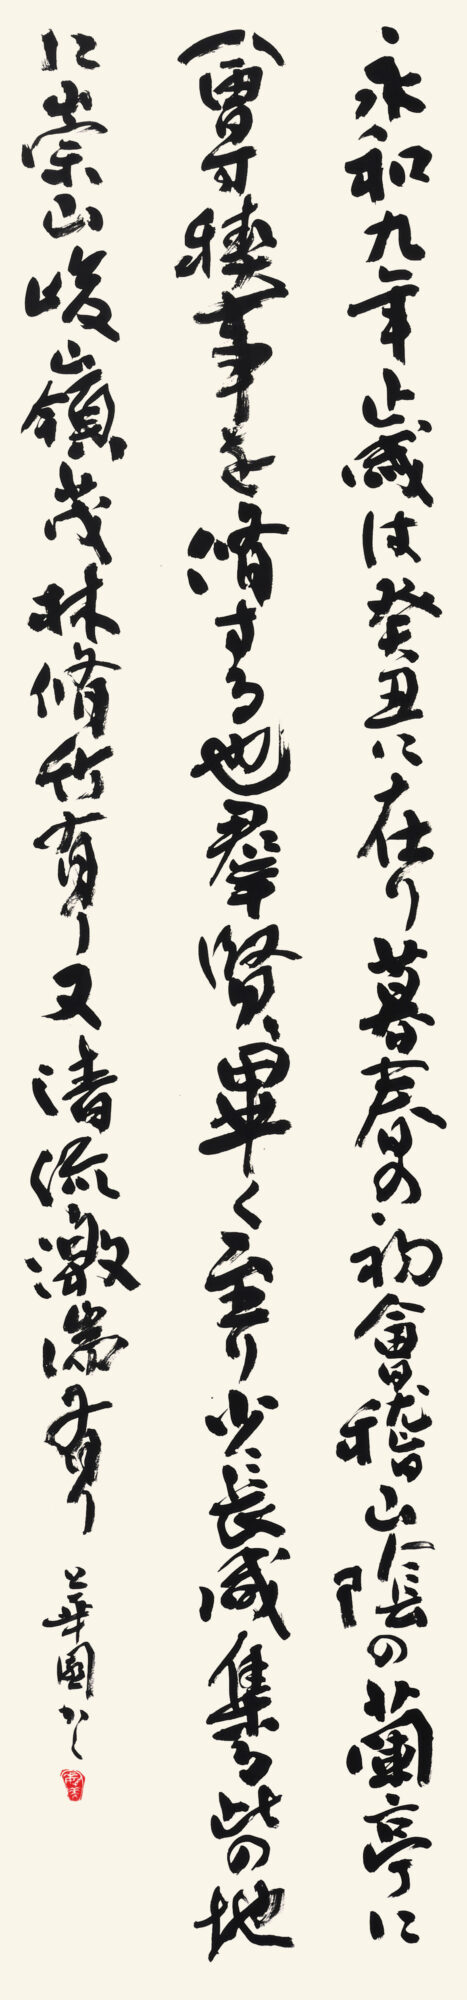 永和九年歳は癸丑に在り暮春の初會稽山陰の蘭亭に
會す禊事を脩する也羣賢畢く至り少長咸集る此の地
に崇山峻嶺茂林脩竹有り又清流激湍有り 華園かく